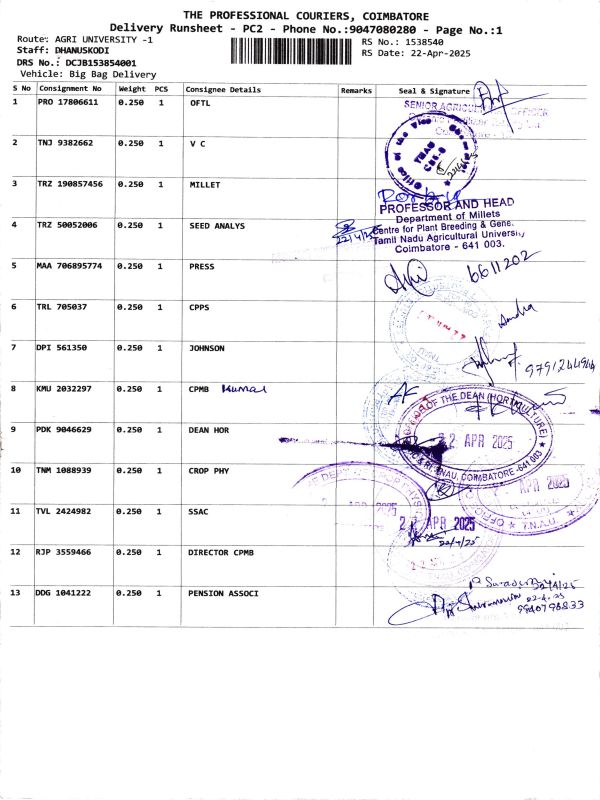 THE PROFESSIONAL COURIERS, COIMBATORE
Delivery Runsheet - PC2 - Phone No.:9047080280 - Page No.:1
Route: AGRI UNIVERSITY -1
RS No.: 1538540
Staff: DHANUSKODI
RS Date: 22-Apr-2025
DRS No.: DCJB153854001
Vehicle: Big Bag Delivery
S No Consignment No Weight PCS Consignee Details Remarks Seal & Signature
1 PRO 17806611 0.250 1 OFTL
SENIOR
2 TNJ 9382662 0.250 1 V C
Office of the Vice
TNAU
CBE-3
3 TRZ 190857456 0.250 1 MILLET
PROFESSOR AND HEAD
Department of Millets
Centre for Plant Breeding & Gene.
Tamil Nadu Agricultural University
Coimbatore - 641 003.
4 TRZ 50052006 0.250 1 SEED ANALYS
22/4/25
5 MAA 706895774 0.250 1 PRESS
6611202
6 TRL 705037 0.250 1 CPPS
7 DPI 561350 0.250 1 JOHNSON
8 KMU 2032297 0.250 1 CPMB Kumar
OF THE DEAN (HORTICULTURE)
9 PDK 9046629 0.250 1 DEAN HOR
22 APR 2025
TNAU, COIMBATORE -641 003
10 TNM 1088939 0.250 1 CROP PHY
APR 2025
T.N.A.U.
11 TVL 2424982 0.250 1 SSAC
22 APR 2025
22/4/25
12 RJP 3559466 0.250 1 DIRECTOR CPMB
13 DDG 1041222 0.250 1 PENSION ASSOCI
22-4-25
9940798833